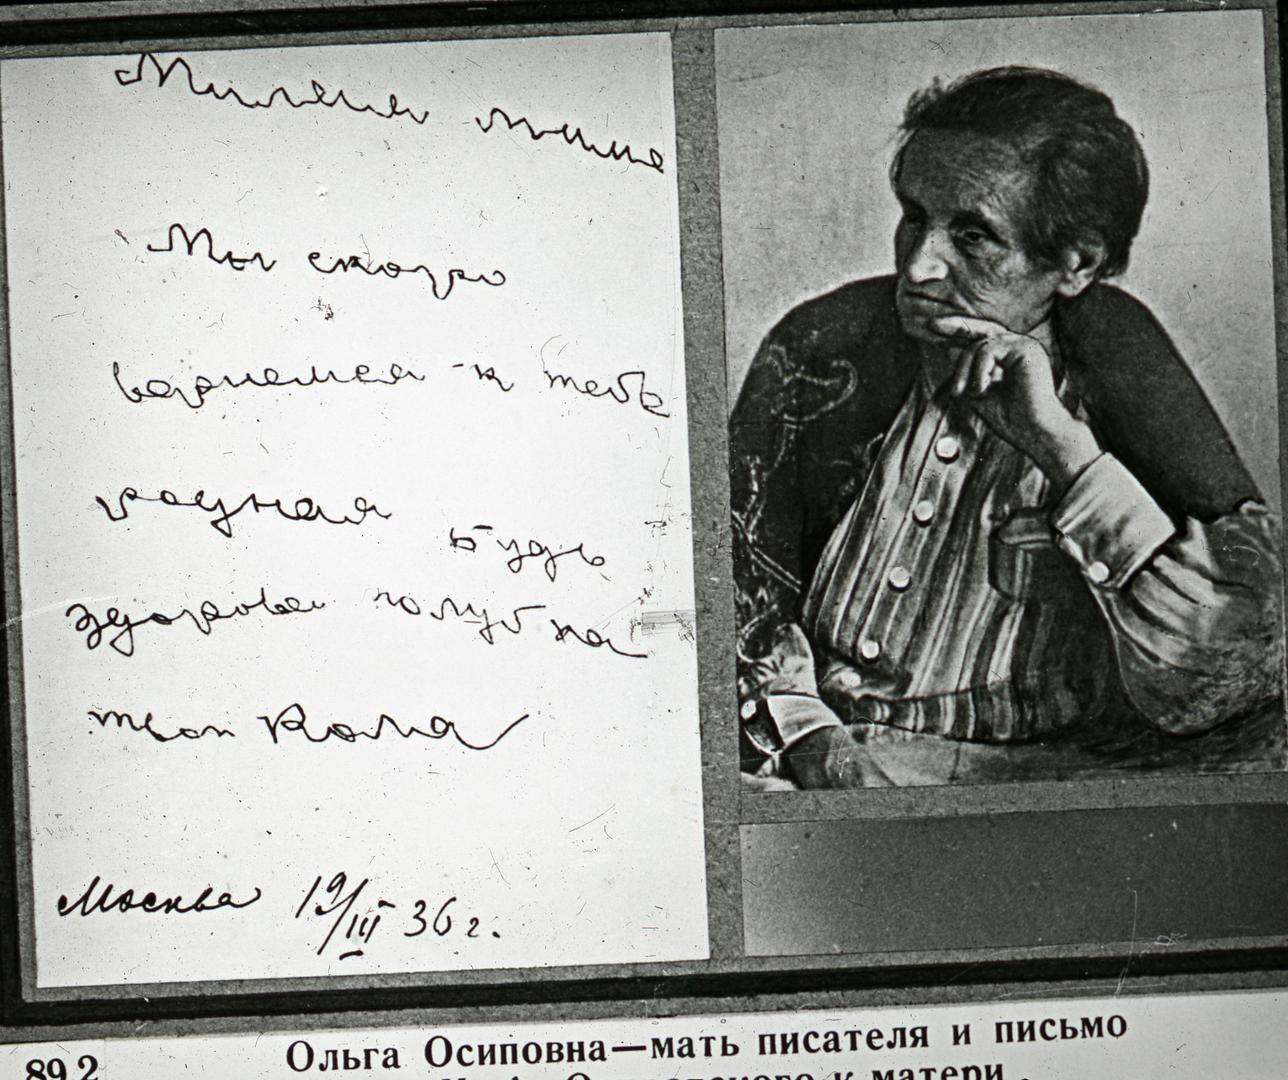 Милая мама
Мы скоро
вернемся к тебе
родная будь
здорова голубка
твой Коля
Москва 19/III 36 г.
89 2
Ольга Осиповна—мать писателя и письмо
к матери.